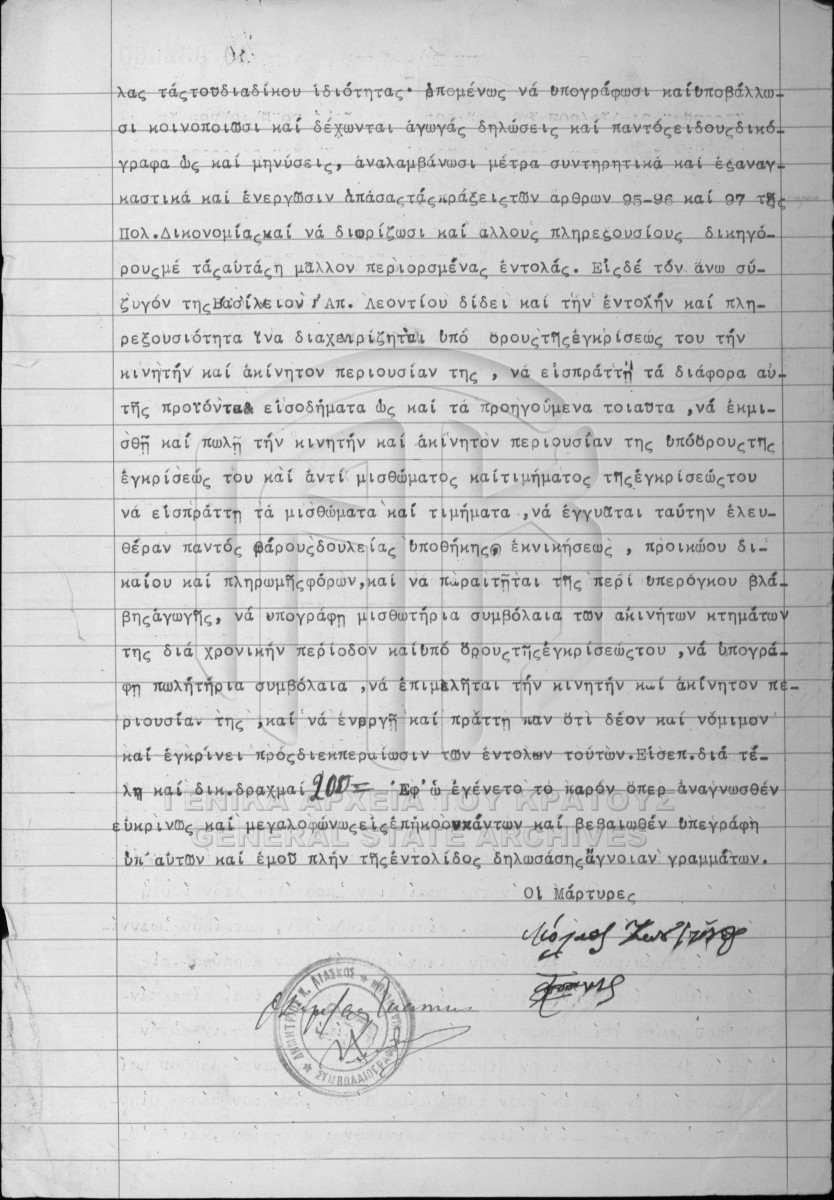 λας τάςτουδιαδίκου ἰδιότητας· ἑπομένως νά ὑπογράφωσι καίὑποβάλλω-
σι κοινοποιῶσι καί δέχωνται ἀγωγάς δηλώσεις καί παντόςειδουςδικό-
γραφα ὡς καί μηνύσεις, ἀναλαμβάνωσι μέτρα συντηρητικά καί ἐξαναγ-
καστικά καί ἐνεργῶσιν ἁπάσαςτάςπράξειςτῶν ἄρθρων 95-96 καί 97 τῆς
Πολ.Δικονομίαςκαί νά διορίζωσι καί ἄλλους πληρεξουσίους δικηγό-
ρουςμέ τάςαὐτάςη μᾶλλον περιορσμένας ἐντολάς. Εἰςδέ τόν ἄνω σύ-
ζυγόν τηςΒασίλειον Ἀπ. Λεοντίου δίδει καί τήν ἐντολήν καί πλη-
ρεξουσιότητα ἵνα διαχειρίζηται ὑπό ὅρουςτῆςἐγκρίσεώς του τήν
κινητήν καί ἀκίνητον περιουσίαν της , νά εἰσπράττῃ τά διάφορα αὐ-
τῆς προϊόντα& εἰσοδήματα ὡς καί τά προηγούμενα τοιαῦτα ,νά ἐκμι-
σθῇ καί πωλῇ τήν κινητήν καί ἀκίνητον περιουσίαν της ὑπόὅρουςτῆς
ἐγκρίσεώς του καί ἀντί μισθώματος καίτιμήματος τῆςἐγκρίσεώςτου
νά εἰσπράττῃ τά μισθώματα καί τιμήματα ,νά ἐγγυᾶται ταύτην ἐλευ-
θέραν παντός βάρουςδουλείας ὑποθήκης, ἐκνικήσεως , προικώου δι-
καίου καί πληρωμῆςφόρων,καί νά παραιτῆται τῆς περί ὑπερόγκου βλά-
βηςἀγωγῆς, νά ὑπογράφῃ μισθωτήρια συμβόλαια των ἀκινήτων κτημάτων
της διά χρονικήν περίοδον καίὑπό ὅρουςτῆςἐγκρίσεώςτου ,νά ὑπογρά-
φῃ πωλητήρια συμβόλαια ,νά ἐπιμελῆται τήν κινητήν καί ἀκίνητον πε-
ριουσίαν της ,καί νά ἐνεργῇ καί πράττῃ παν ὅτι δέον καί νόμιμον
καί ἐγκρίνει πρόςδιεκπεραίωσιν τῶν ἐντολων τούτων.Εἰσεπ.διά τέ-
λη καί δικ.δραχμαί 200= Ἐφ'ὧ ἐγένετο το παρόν ὅπερ ἀναγνωσθέν
εὐκρινῶς καί μεγαλοφώνωςεἰςἐπήκοονπάντων καί βεβαιωθέν ὑπεγράφη
ὑπ'αὐτῶν καί ἐμοῦ πλήν τῆςἐντολίδος δηλωσάσηςἄγνοιαν γραμμάτων.
Οἱ Μάρτυρες
ΔΗΜΗΤΡΙΟΣ Κ. ΛΙΑΣΚΟΣ
ΣΥΜΒΟΛΑΙΟΓΡΑΦΟΣ
ΓΕΝΙΚΑ ΑΡΧΕΙΑ ΤΟΥ ΚΡΑΤΟΥΣ
GENERAL STATE ARCHIVES